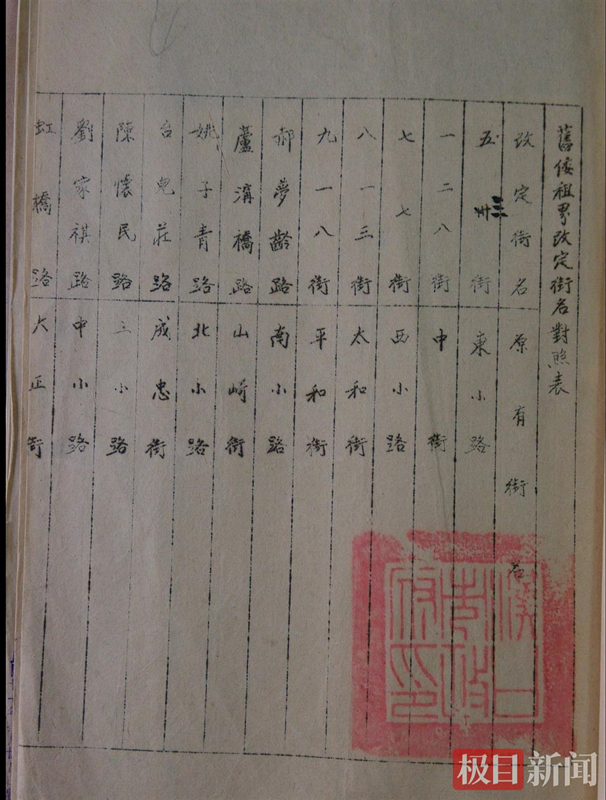 舊倭租界改定街名對照表
改定街名 原有街名
五卅三街 東小路
一二八街 中街
七七街 西小路
八一三街 太和街
九一八街 平和街
郝夢齡路 南小路
蘆溝橋路 山崎街
姚子青路 北小路
台兒莊路 成忠街
陳懷民路 小路
劉家祺路 中小路
虹橋路 大正街
漢口市政府印
极目新闻